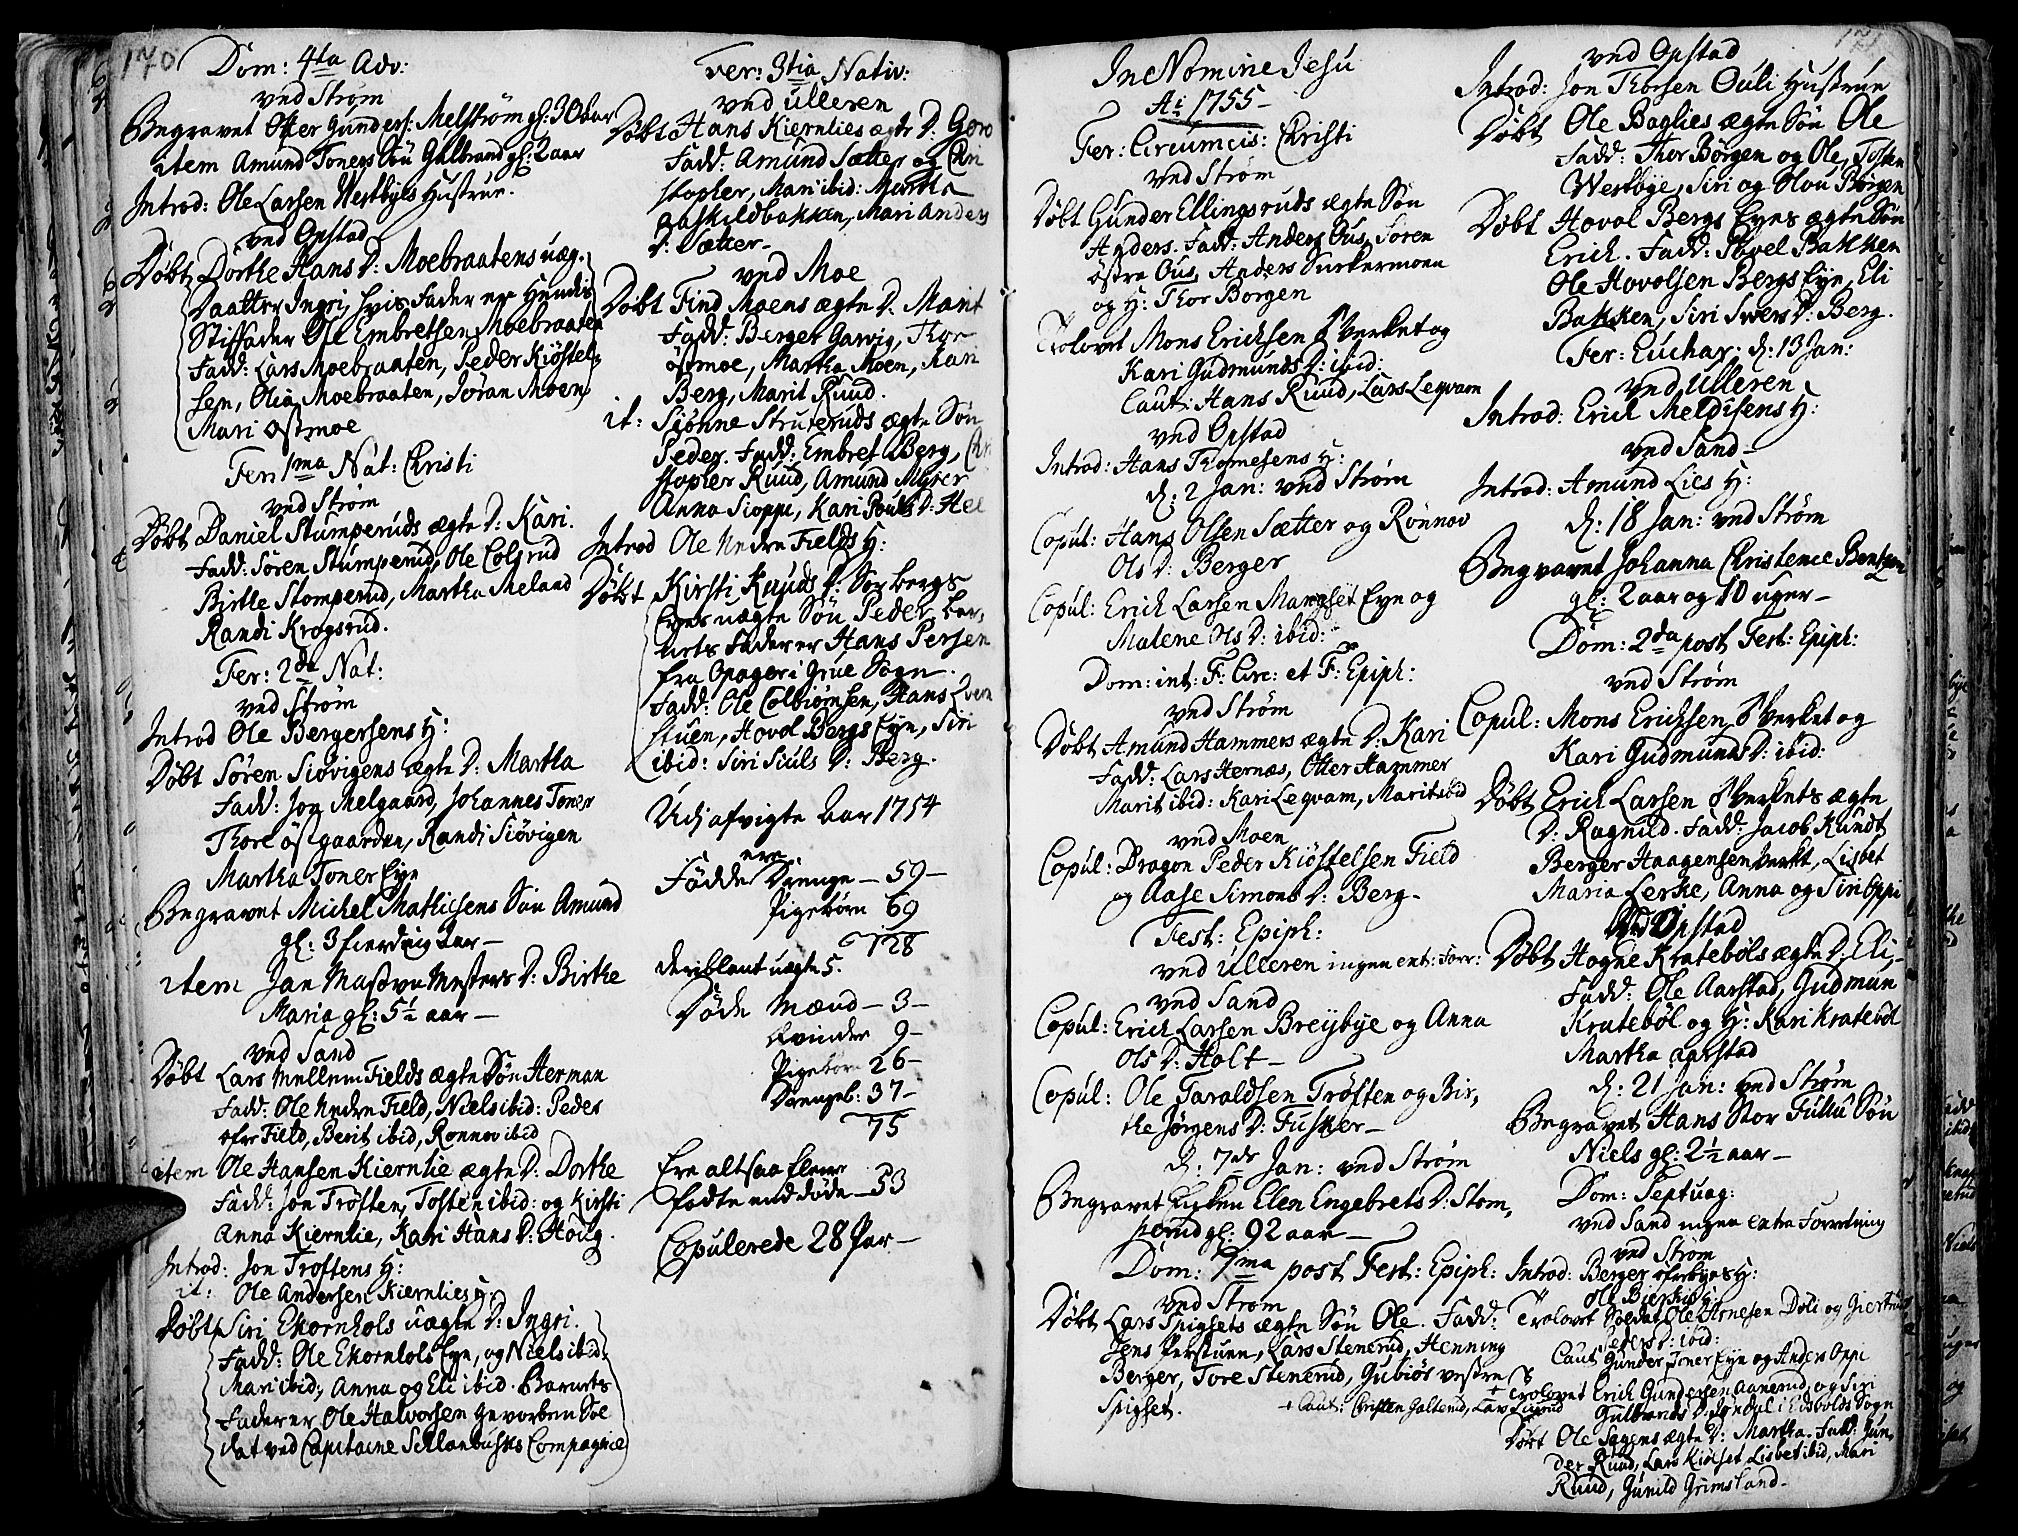 170
Dom: 4ta Adv:
ved Strøm
Begravet Otter Gunders: Melstrøm gl: 30 aar
item Amund Toners Søn Gulbrand gl: 2 aar
Introd: Ole Larsen Westbyes Hustrue.
ved Opstad
Døbt Dorthe Hans D: Moebraatens uæg.
Daatter Ingri, hvis Fader er Hendis
Stiffader Ole Embretsen Moebraaten
Fadd: Lars Moebraaten, Peder Kiøstel-
sen, Olia Moebraaten, Jøran Moen
Mari Østmoe
Fer: 1ma Nat: Christi
ved Strøm
Døbt Daniel Stumperuds ægte D: Kari.
Fadd: Søren Stumperud, Ole Colsrud
Birthe Stomperud, Martha Meland
Randi Krogsrud.
Fer: 2da Nat:
ved Strøm
Introd Ole Bergersens H:
Døbt Søren Siøvigens ægte D: Martha
Fadd: Jon Melgaard, Johannes Toner
Thore Østgaarden, Randi Siøvigen
Martha Toner Eye
Begravet Michel Mathisens Søn Amund
gl: 3 fierding aar
item Jan Masovnmesters D: Birthe
Maria gl: 5½ aar
ved Sand
Døbt Lars Mellem Fields ægte Søn Herman
Fadd: Ole Nedre Field, Niels ibid: Peder
øfre Field, Berit ibid, Rønnov ibid
item Ole Hansen Kiernlie ægte D: Dorthe
Fadd: Jon Trøften, Tosten ibid: og Kirsti
Anna Kiernlie, Kari Hans D: Houg.
Introd: Jon Trøftens H:
it: Ole Andersen Kiernlies H:
Døbt Siri Ekornhols uægte D: Ingri.
Fadd: Ole Ekornhols Eye, og Niels ibid.
Mari ibid; Anna og Eli ibid. Barnets
Fader er Ole Halvorsen gevorben Sol
dat ved Capitaine Schlanbusks Compagnie
Fer: 3tia Nativ:
ved Ulleren
Døbt Hans Kiernlies ægte D: Goro
Fadd: Amund Sætter og Chri
stopher, Mari ibid: Martha
Aaskildbakken, Mari Anders
D: Sætter
ved Moe
Døbt Find Moens ægte D: Marit
Fadd: Berger Garvig, Thor
Østmoe, Martha Moen, Kari
Berg, Marit Ruud.
it: Siøhne Struteruds ægte Søn
Peder. Fadd: Embret Berg, Chri
stopher Ruud, Amund Myrer
Anna Sioppi, Kari Pouls D:
Introd Ole Nedre Fields H:
Døbt Kirsti Knuds D: Sor bergs
Eyes uægte Søn Peder, bar,
nets Fader er Hans Persen
fra Opager i Grue Sogn
Fadd: Ole Colbiørnsen, Hans Qvern
stuen, Hovol Bergs Eye, Siri
ibid: Siri Siuls D: Berg.
Udi afvigte Aar 1754
ere
Fødde Drenge — 59 —
Pigebørn 69
128
deriblant uægte 5.
Døde Mænd — 3 —
Qvinder 9 —
Pigebørn 26 —
Drengeb: 37 —
75
Ere altsaa flere
fødte end døde — 53
Copulerede 28 Par —
171
In Nomine Jesu
Ao 1755
Fer: Circumcis: Christi
ved Strøm
Døbt Gunder Ellingsruds ægte Søn
Anders. Fadd: Anders Ous, Søren
østre Ous, Anders Surkermoen
og H: Thor Borgen
Trolovet Mons Erichsen Verket og
Kari Gudmunds D: ibid:
Caut: Hans Ruud, Lars Leqvam
ved Opstad
Introd: Hans Thomesens H:
d: 2 Jan: ved Strøm
Copul: Hans Olsen Sætter og Rønnov
Ols D: Berger
Copul: Erich Larsen Mangset Eye og
Malene Ols D: ibid:
Dom: int: F: Circ: et F: Epiph:
ved Strøm
Døbt Amund Hammers ægte D: Kari
Fadd: Lars Hernæs, Otter Hammer
Marit ibid: Kari Leqvam, Marit ibid
ved Moen
Copul: Dragon Peder Kiøstelsen Field
og Aase Simons D: Berg
Fest: Epiph:
ved Ulleren ingen ext: Forr:
ved Sand
Copul: Erich Larsen Breysbye og Anna
Ols D: Holt
Copul: Ole Taraldsen Trøften og Bir,
the Jørgens D: Fusker
d: 7de Jan: ved Strøm
Begravet Enken Elen Engebrets D: Stom,
perud gl: 92 aar
Dom: 1ma post Fest: Epiph:
ved Strøm
Døbt Lars Spigsets ægte Søn Ole. Fadd:
Jens Perstuen, Lars Stenerud, Henning
Berger, Tore Stenerud, Gubiør vestre
Spigset.
+ Caut: Christen Galterud, Lars Lierud
ved Opstad
Introd: Jon Thorsen Ouli Hustrue
Døbt Ole Baglies ægte Søn Ole
Fadd: Thor Børgen og Ole, Tosten
Westbye, Siri og Olou Børgen
Døbt Hovol Bergs Eyes ægte Søn
Erich. Fadd: Povel Bakken
Ole Hovolsen Bergs Eye, Eli
Bakken, Siri Svers D: Berg.
Fer: Euchar: d: 13 Jan:
ved Ulleren
Introd: Erich Meldisens H:
ved Sand
Introd: Amund Lies H:
d: 18 Jan: ved Strøm
Begravet Johanna Christence Bentzen
gl: 2 aar og 10 uger
Dom: 2da post Fest: Epiph:
ved Strøm
Copul: Mons Erichsen Verket og
Kari Gudmunds D: ibid:
Døbt Erich Larsen Verkets ægte
D: Ragnild. Fadd: Jacob Kundt
Berger Haagensen Verket, Lisbet
Maria Lerke, Anna og Siri Oppi
Ved Opstad
Døbt Hogne Kratebøls ægte D: Eli,
Fadd: Ole Aarstad, Gudmun
Kratebøl og H: Kari Kratebøl
Martha Aarstad
d: 21 Jan: ved Strøm
Begravet Hans Stor Fullu Søn
Niels gl: 2½ aar
Dom: Septuag:
ved Sand ingen extra Forretning
ved Strøm
Introd: Berger øfrebyes H:
Ole Bierkis H:
Trolovet Soldat Ole Arnesen Doli og Giertrud
Peders D: ibid:
Caut: Gunder Toner Eye og Anders Oppi
+ Trolovet Erich Gundersen Aanerud og Siri
Gulbrands D: Dyndal i Eidsvolds Sogn
Døbt Ole Sagens ægte D: Martha. Fadd: Gun,
der Ruud, Lars Kiølset, Lisbet ibid, Mari
Ruud, Gunild Grimsland